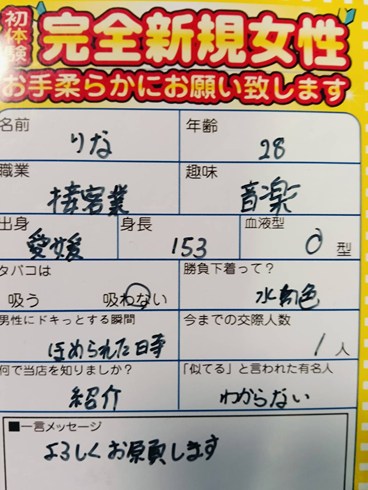 初体験
完全新規女性
お手柔らかにお願い致します
名前 りな 年齢 28
職業 接客業 趣味 音楽
出身 愛媛 身長 153 血液型 O 型
タバコは 吸う 吸わない 勝負下着って? 水色
男性にドキっとする瞬間 ほめられた時 今までの交際人数 1 人
何で当店を知りましたか? 紹介 「似てる」と言われた有名人 わからない
■一言メッセージ
よろしくお願いします